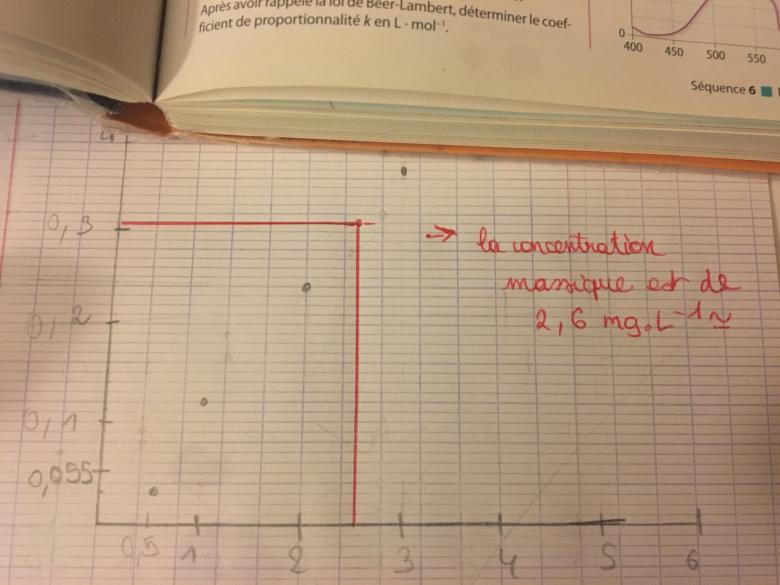 Après avoir rappelé la loi de Beer-Lambert, déterminer le coef-
ficient de proportionnalité k en L · mol⁻¹.
0
400 450 500 550
Séquence 6
0,3
→ la concentration
massique est de
2,6 mg.L⁻¹ ≃
0,2
0,1
0,055
0,5 1 2 3 4 5 6